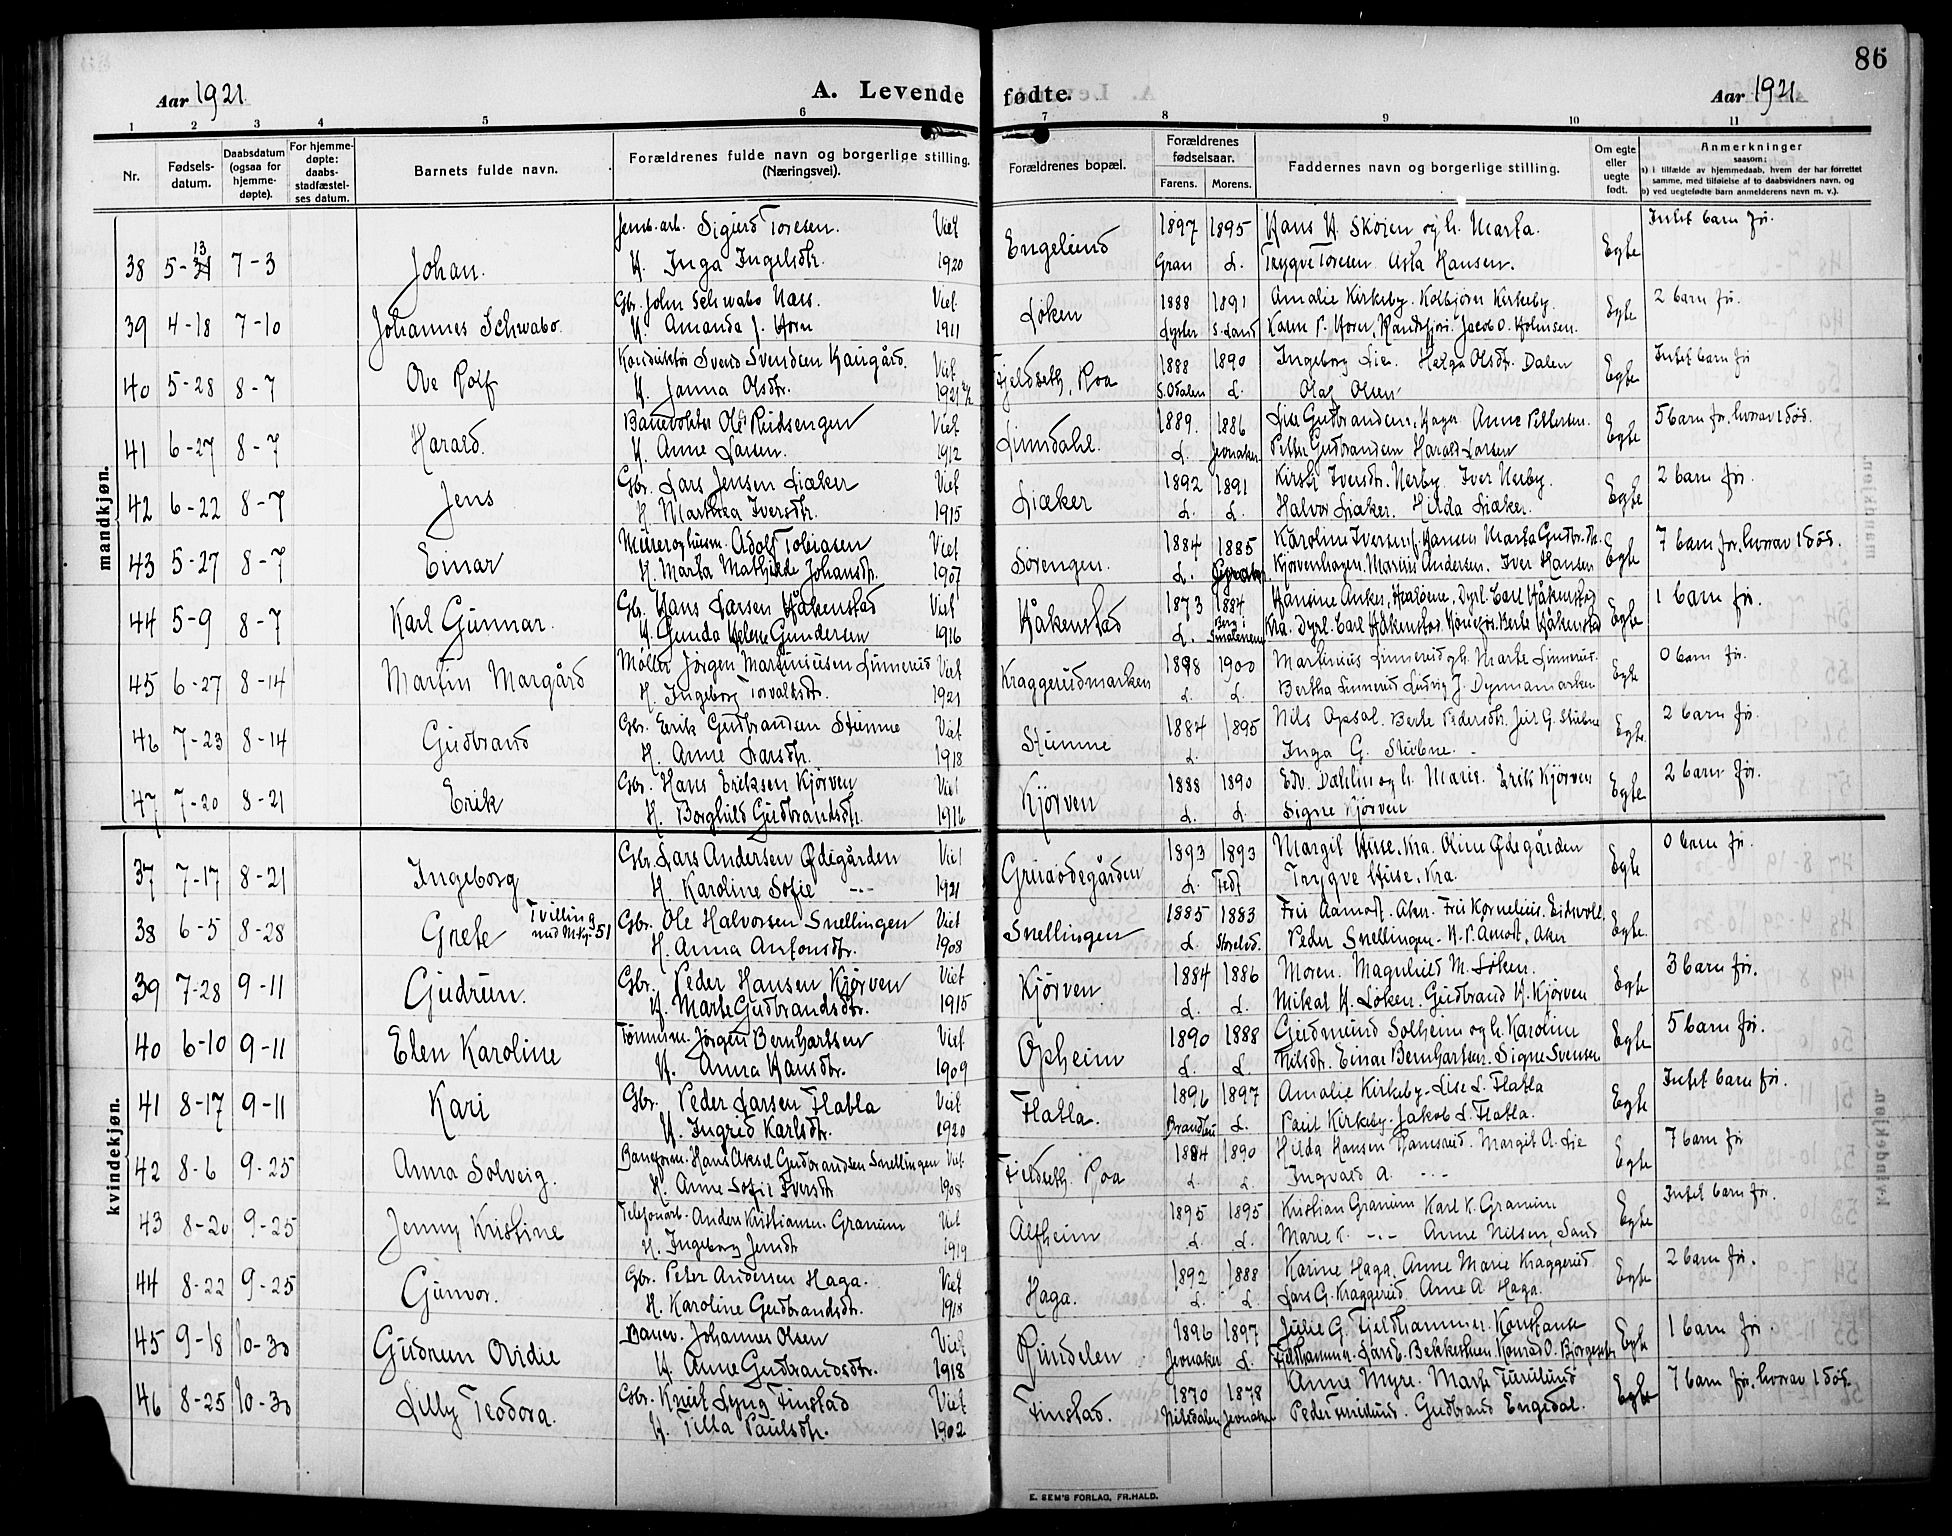 86
Aar 1921
A. Levende fødte.
Aar 1921
1 2 3 4 5 6 7 8 9 10 11
Nr.
Fødsels-
datum.
Daabsdatum
(ogsaa for
hjemme-
døpte).
For hjemme-
døpte:
daabs-
stadfæstel-
ses datum.
Barnets fulde navn.
Forældrenes fulde navn og borgerlige stilling.
(Næringsvei).
Forældrenes bopæl.
Forældrenes
fødselsaar.
Farens. Morens.
Faddernes navn og borgerlige stilling.
Om egte
eller
uegte
født.
Anmerkninger
saasom:
a) i tilfælde av hjemmedaab, hvem der har forrettet
samme, med tilføielse af to daabsvidners navn, og
b) ved uegtefødte barn anmelderens navn m. v.).
mandkjøn.
Jernb.arb. Sigurd Toresen. Viet 1897 1895 Hans H. Skøien og h. Marta. Intet barn før.
38 5-13 7-3 Johan. H. Inga Ingelsdtr. 1920 Engelund Gran L. Trygve Toresen Asta Hansen. Egte
Gbr. John Schwabo Næs. Viet 1888 1891 Amalie Kirkeby. Kolbjørn Kirkeby. 2 barn før.
39 4-18 7-10 Johannes Schwabo. H. Amanda J. Horn 1911 Løken Lyster S. Land Karen P. Horn, Randsfjord. Jacob O. Holmsen. Egte
Konduktør Svend Svendsen Haugård. Viet 1888 1890 Ingeborg Lie. Helga Olsdtr. Dalen Intet barn før
40 5-28 8-7 Ove Rolf H. Janna Olsdtr. 1921 Fjeldseth, Roa S.Odalen L. Olaf Olsen Egte
Banevokter Ole Rudsengen Viet 1889. 1886 Lise Gudbrandsen, Hager Anne Pettersen. 5 barn før, hvorav 1 død.
41 6-27 8-7 Harald. H. Anne Larsen. 1912 Linndahl. L. Jevnaker Petter Gudbrandsen Harald Larsen Egte
Gbr. Lars Jensen Liæker Viet 1892 1891 Kirsti Iversdtr. Nerby Iver Nerby. 2 barn før.
42 6-22 8-7 Jens H. Marthea Iversdtr. 1915 Liæker L. L. Halvor Liæker. Hilda Liæker. Egte
Murer og husm. Adolf Tobiasen Viet 1884 1885 Karoline Iversen f. Hansen Marta Gudbr.dtr. 7 barn før, hvorav 1 død.
43 5-27 8-7 Einar H. Marta Mathilde Johansdtr. 1907 Sørengen. L. Kjørvenhagen. Marius Andersen. Iver Hansen Egte
Gbr. Hans Larsen Håkenstad Viet 1873 1884 Hansine Anker, Dyrl. Carl Håkenstad 1 barn før.
44 5-9 8-7 Karl Gunnar. H. Gunda Helene Gundersen 1916 Håkenstad L. Berg i Smålenene Kra. Dyrl. Carl Håkenstad. Berte Håkenstad Egte
Møller Jørgen Martiniusen Linnerud Viet 1898 1900 Martinius Linnerud og h. Marte Linnerud. 0 barn før.
45 6-27 8-14 Martin Margård H. Ingeborg Torvaldsdtr. 1921 Kraggerudmarken L. L. Bertha Linnerud Ludvig J. Dynnamarken Egte
Gbr. Erik Gudbrandsen Stumne Viet 1884 1895 Nils Opsal. Berte Pedersdtr. G. Stubne 2 barn før.
46 7-23 8-14 Gudbrand H. Anne Larsdtr. 1918 Stumne L. Inga G. Stubne. Egte
Gbr. Hans Eriksen Kjørven Viet 1888 1890 Edv. Dahlin og h. Marie. Erik Kjørven 2 barn før.
47 7-20 8-21 Erik H. Borghild Gudbrandsdtr. 1916 Kjørven L. L. Signe Kjørven Egte
kvindekjøn.
Gbr. Lars Andersen Ødegården Viet 1893 1893 Margit Huse. Kra. Oline Ødegården 0 barn før.
37 7-17 8-21 Ingeborg H. Karoline Sofie —"— 1921 Grinaødegården L. Fedt Trygve Huse. Kra. Egte
Gbr. Ole Halvorsen Snellingen Viet 1885 1883 Fru Aamodt. Aker. Fru Kornelius. Eidsvoll.
38 6-5 8-28 Grete Tvilling med Mkj 51 H. Anna Antonsdtr. 1908 Snellingen L. Storelvd. Peder Snellingen. H. P. Åmodt, Aker Egte
Gbr. Peder Hansen Kjørven Viet 1884 1886 Moren. Magnhild M. Løken. 3 barn før.
39 7-28 9-11 Gudrun. H. Marte Gudbrandsdtr. 1915 Kjørven L. L. Mikal H. Løken. Gudbrand H. Kjørven Egte
Tømmerm. Jørgen Bernhartsen Viet 1890 1888 Gudmund Solheim og h. Karoline 5 barn før.
40 6-10 9-11 Elen Karoline H. Anna Hansdtr. 1909 Opheim L. L. Nilsdtr. Einar Bernhartsen. Signe Svensen Egte
Gbr. Peder Larsen Flatla Viet 1896 1897 Amalie Kirkeby. Lise L. Flatla Intet barn før.
41 8-17 9-11 Kari H. Ingrid Karlsdtr. 1920 Flatla. Brandbu L. Paul Kirkeby. Jakob L. Flatla. Egte
Baneform. Hans Aksel Gudbrandsen Snellingen Viet 1884 1890 Hilda Hansen Ramsrud. Margit A. Lie 7 barn før
42 8-6 9-25 Anna Solveig. H. Anne Sofie Iversdtr. 1908 Fjeldseth. Roa L. L. Ingvald A. —"— Egte
Telefonarb. Anders Kristiansen Granum Viet 1895 1895 Kristian Granum Karl K. Granum Intet barn før.
43 8-20 9-25 Jenny Kristine H. Ingeborg Jensdtr. 1919 Alfheim L. L. Marie K. —"— Anne Nilsen, Sand Egte
Gbr. Peter Andersen Haga. Viet 1892 1888 Karine Haga. Anne Marie Kraggerud 2 barn før.
44 8-22 9-25 Gunvor. H. Karoline Gudbrandsdtr. 1918 Haga. L. L. Lars G. Kraggerud Anne A. Haga. Egte
Banev. Johannes Olsen Viet 1896 1897 Julie G. Fjeldhammer. Konstanse 1 barn før.
45 9-18 10-30 Gudrun Ovidie H. Anne Gudbrandsdtr. 1918 Rundelen Jevnaker L. Fjeldhammer. Lars E. Bekkerhuen Konrad O. Egte
Gbr. Knut Lyng Finstad Viet 1870 1878 Anne Myre. Marte Furulund 7 barn før, hvorav 1 død.
46 8-25 10-30 Lilly Teodora. H. Tilla Paulsdtr. 1902 Finstad. Nitedalen Jevnaker Peder Furulund. Gudbrand Engedal. Egte
E. SEM'S FORLAG, FR.HALD.